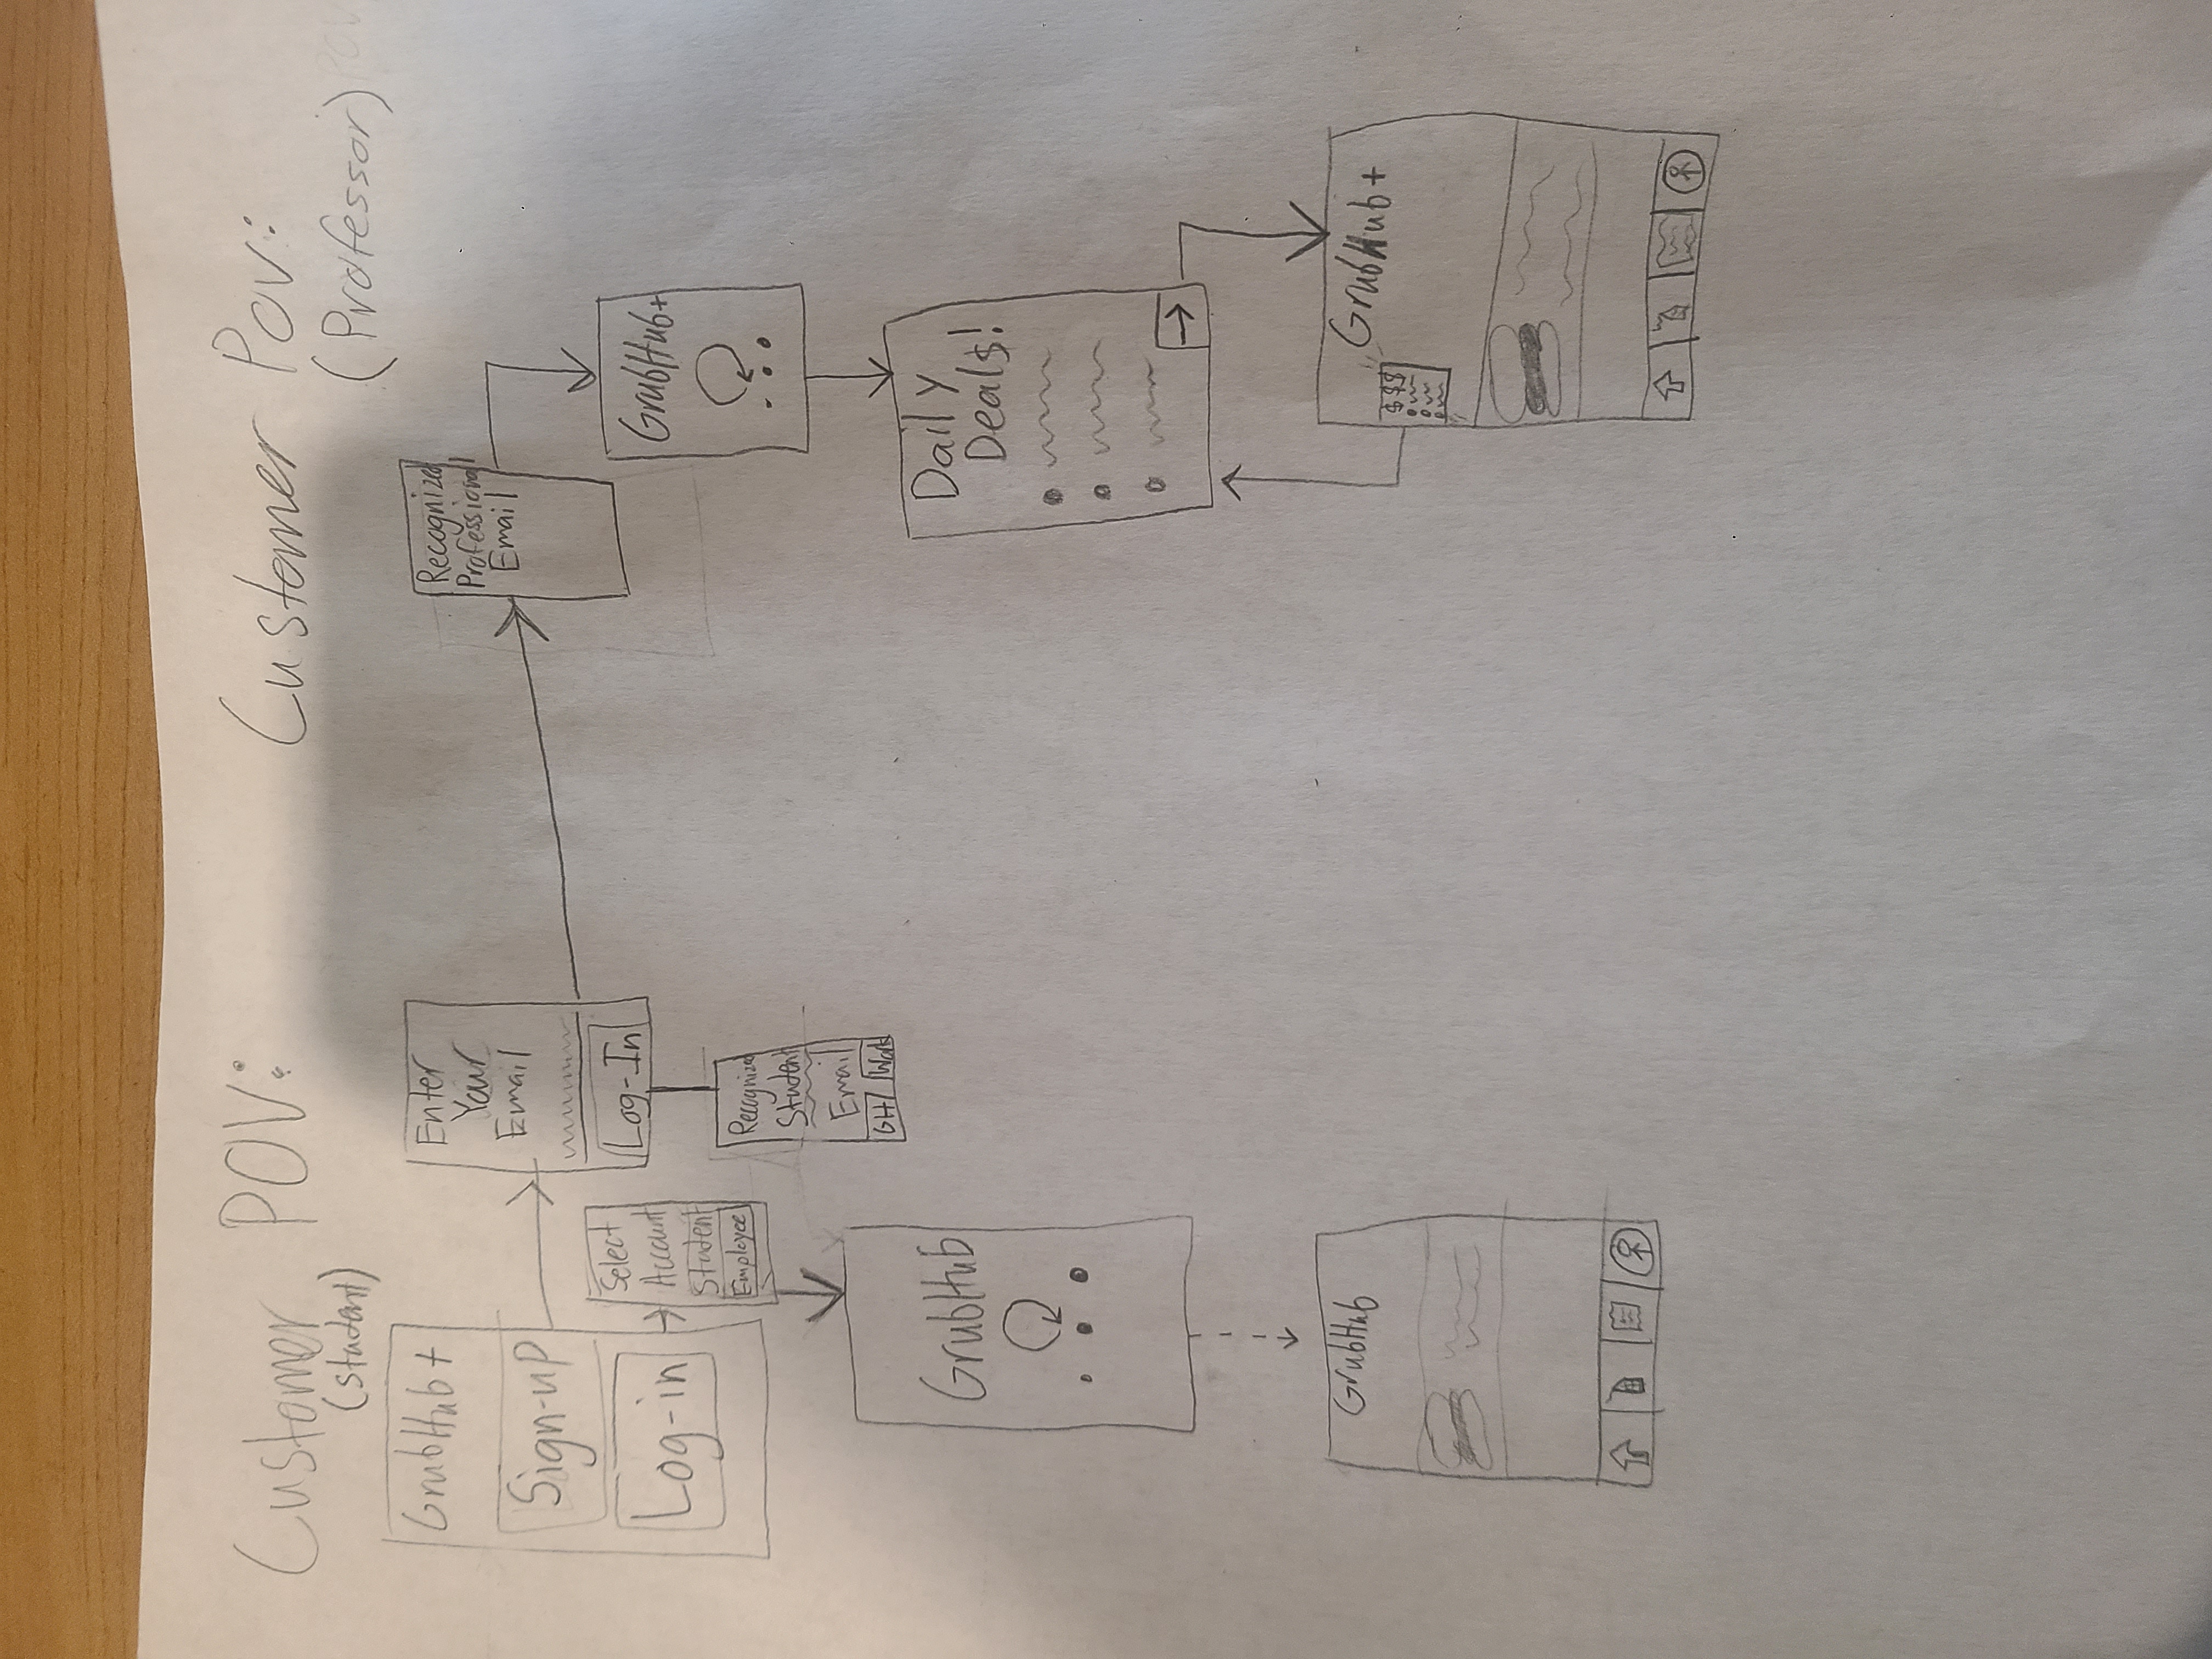 Customer POV:
(student)
GrubHub+
Sign-up
Log-in
Select
Account
Student
Employee
Enter
Your
Email
Log-In
Recognized
Student
Email
GH
GrubHub
GrubHub
Customer Pov:
(Professor)
POV
Recognized
Professional
Email
GrubHub+
Daily
Deal$!
GrubHub+
$$$